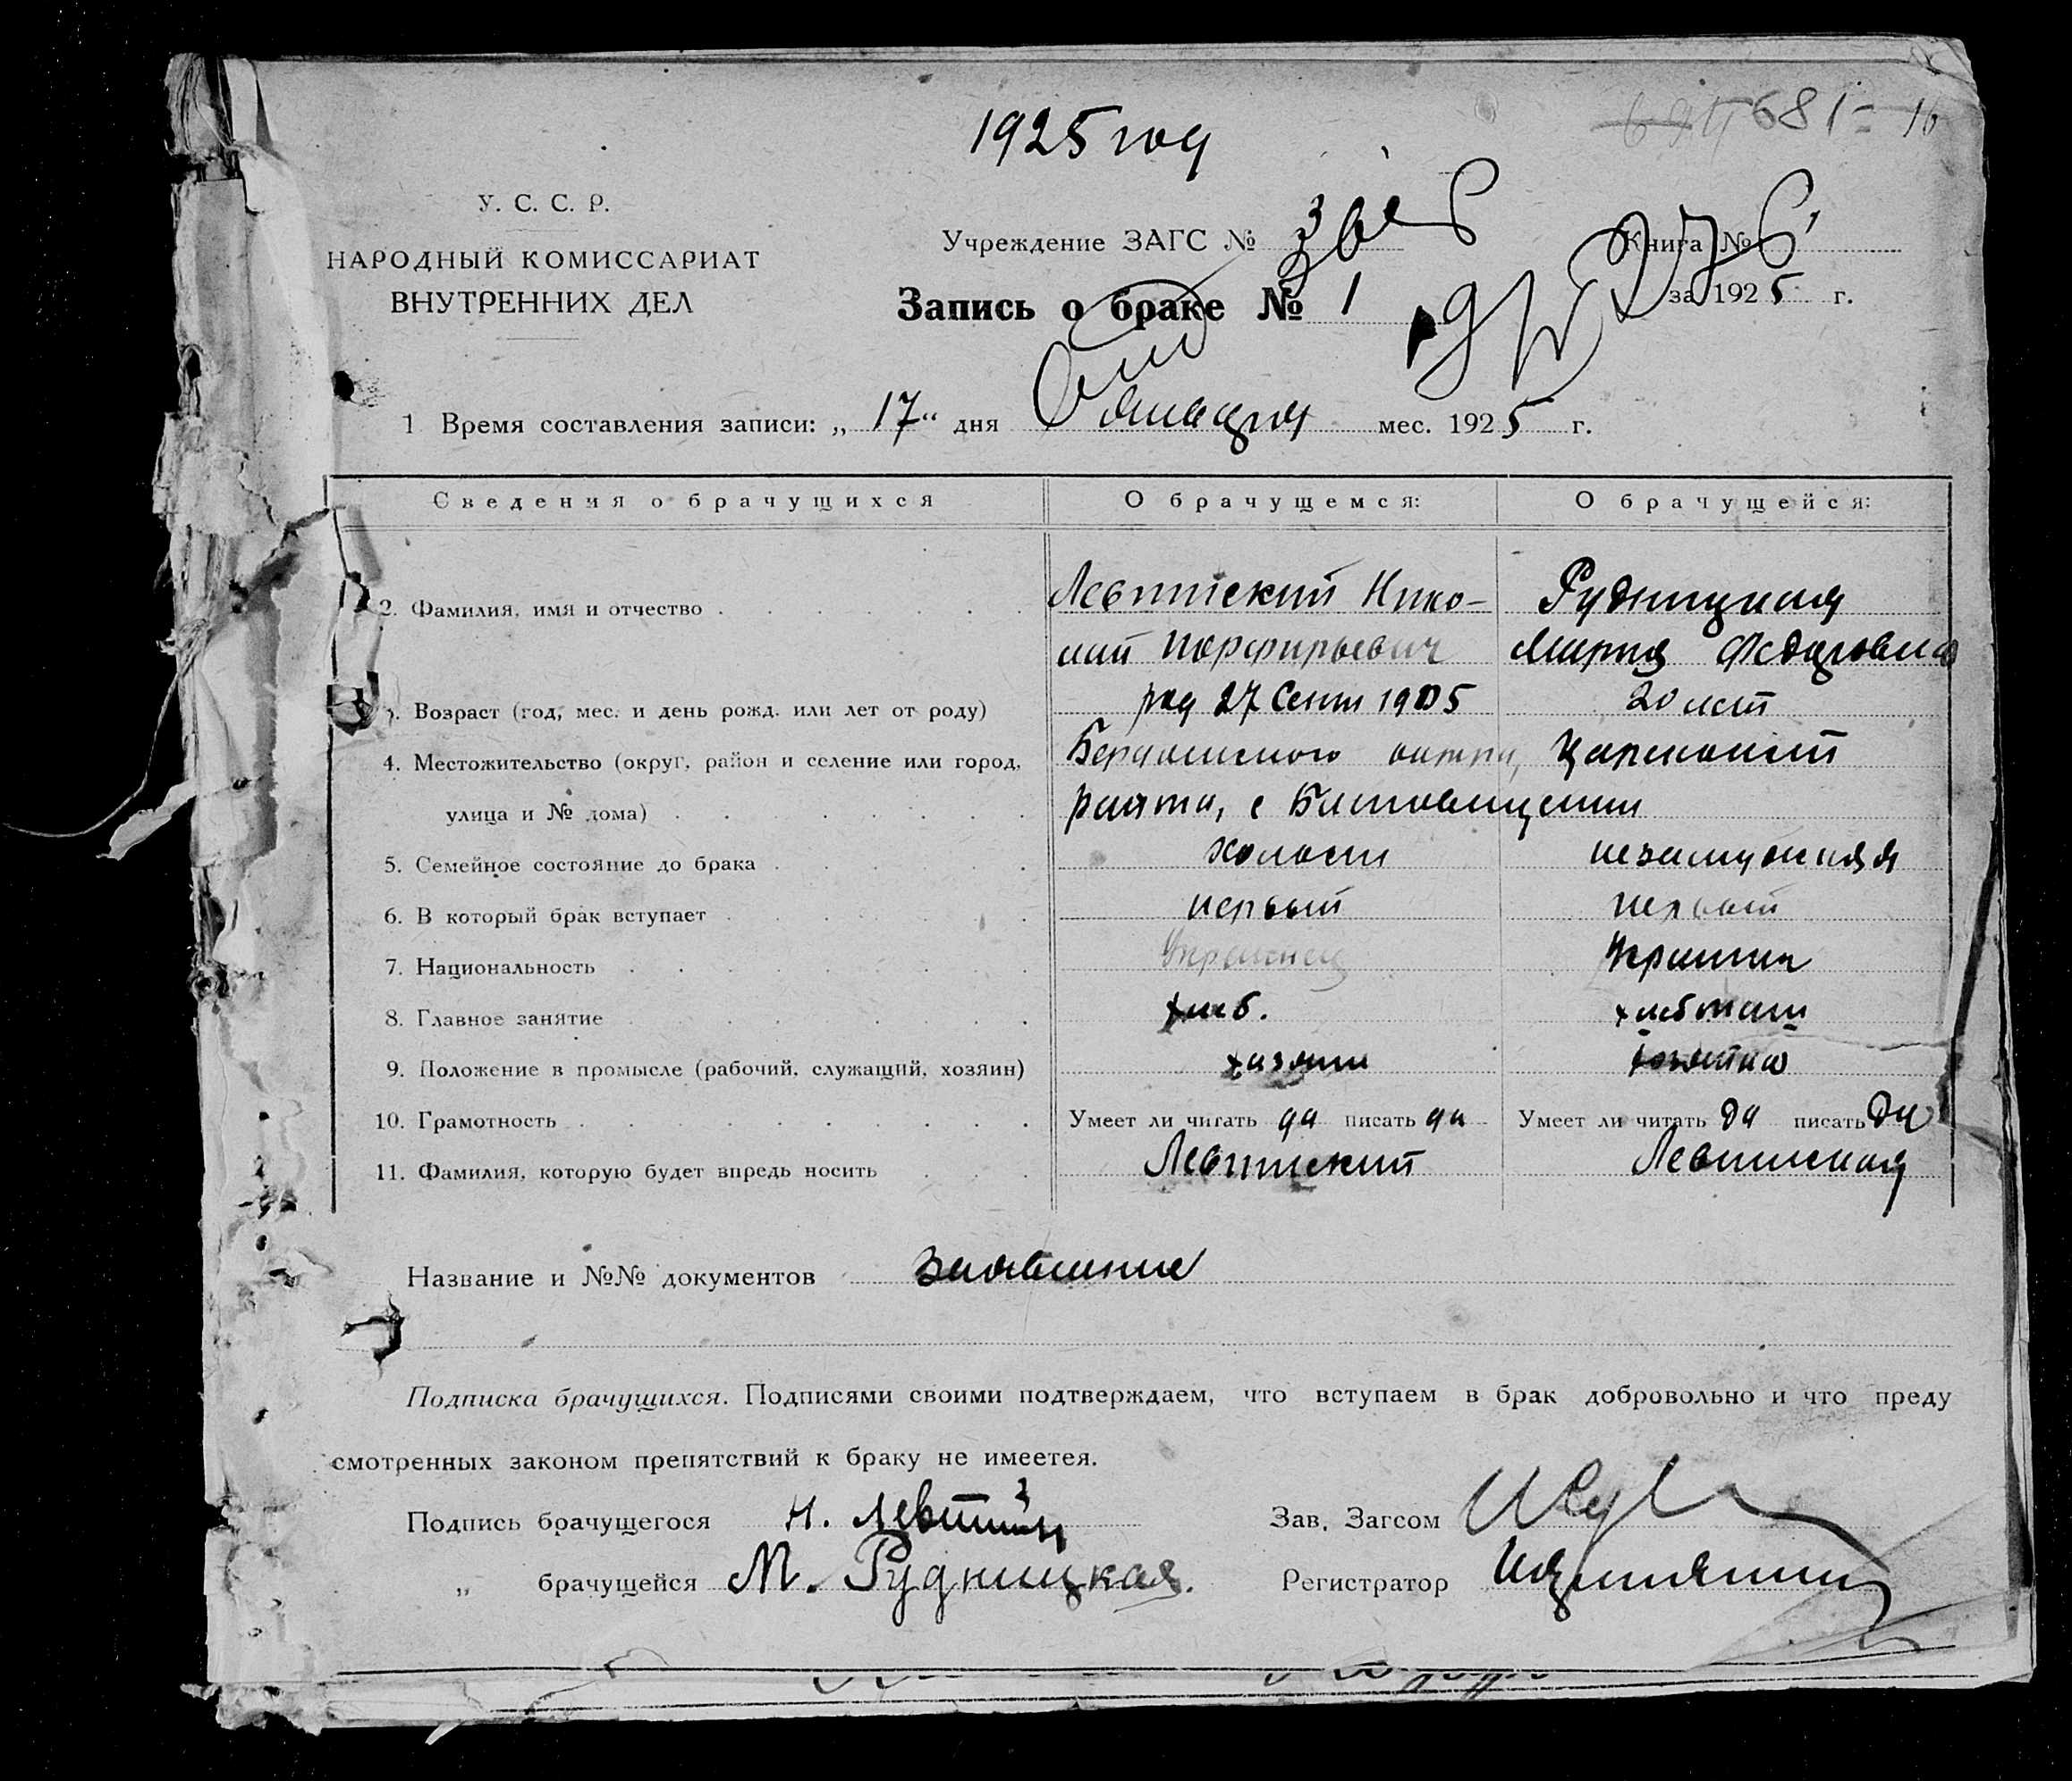 1925 год
681 - 16
У. С. С. Р.
НАРОДНЫЙ КОМИССАРИАТ
ВНУТРЕННИХ ДЕЛ
Учреждение ЗАГС №
Книга №
Запись о браке № 1
за 1925 г.
1 Время составления записи: „ 17 “ дня января мес. 1925 г.
Сведения о брачущихся О брачущемся: О брачущейся:
2. Фамилия, имя и отчество Левитский Нико- Рудницкая
лай Порфирьевич Мария Федоровна
Возраст (год, мес. и день рожд. или лет от роду) род 27 Сент 1905 20 лет
4. Местожительство (округ, район и селение или город,
улица и № дома) района, с
5. Семейное состояние до брака холост незамужняя
6. В который брак вступает первый первый
7. Национальность Украинец Украинка
8. Главное занятие хлеб. хлебопаш
9. Положение в промысле (рабочий, служащий, хозяин) хазяин хозяйка
10. Грамотность Умеет ли читать да писать да Умеет ли читать да писать да
11. Фамилия, которую будет впредь носить Левитский Левитская
Название и №№ документов Заявление
Подписка брачущихся. Подписями своими подтверждаем, что вступаем в брак добровольно и что преду
смотренных законом препятствий к браку не имеетея.
Подпись брачущегося Н.
Зав. Загсом
„ брачущейся М. Рудницкая.
Регистратор